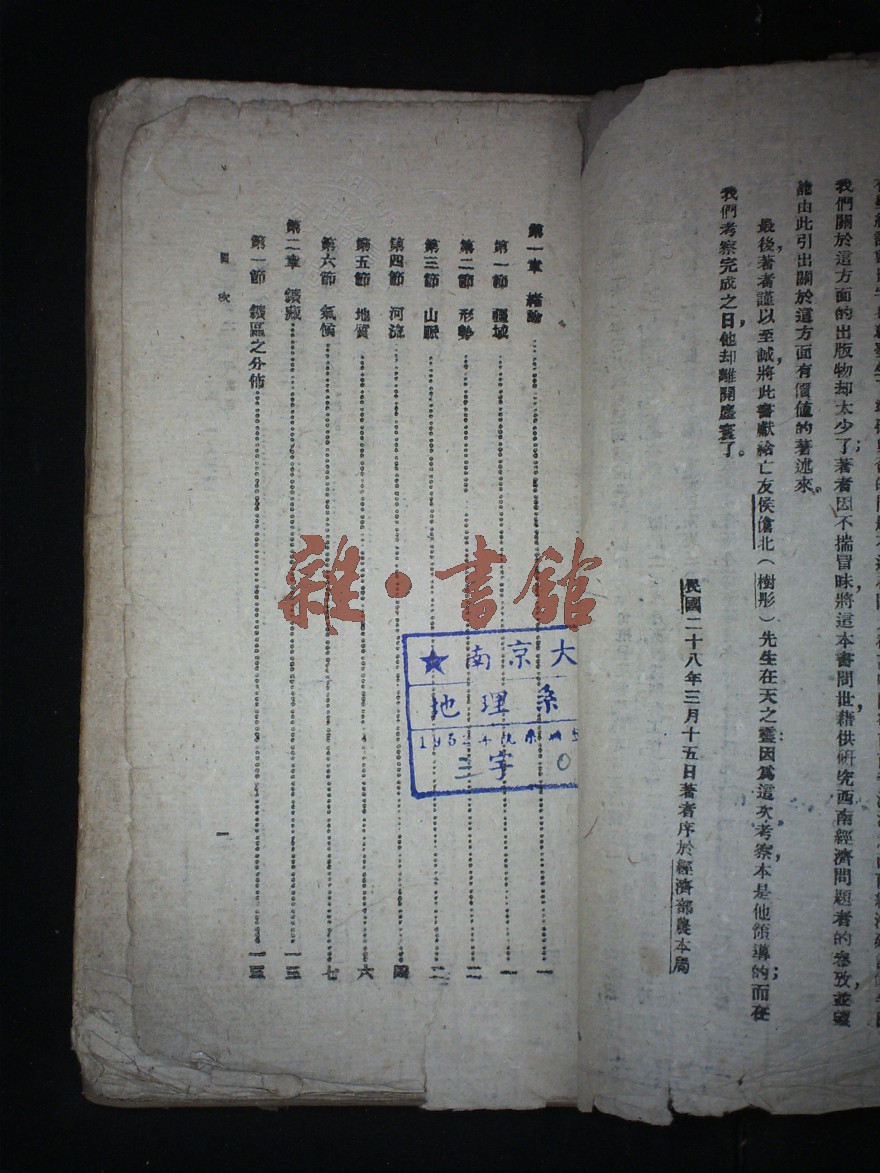 我們關於這方面的出版物却太少了；著者因不揣冒昧將這本書問世，藉供研究西南經濟問題者的參攷，並望
能由此引出關於這方面有價値的著述來。
最後著者謹以至誠將此書獻給亡友侯傖北（樹彤）先生在天之靈，因爲這次考察，本是他領導的；而在
我們考察完成之日，他却離開塵寰了。
民國二十八年三月十五日著者序於經濟部農本局
第一章 緒論 一
第一節 疆域 一
第二節 形勢 二
第三節 山脈 二
第四節 河流 四
第五節 地質 六
第六節 氣候 七
第二章 鑛產 一三
第一節 鑛區之分佈 一三
目次
一
★南京大
地理系
三字 0
雜·書館